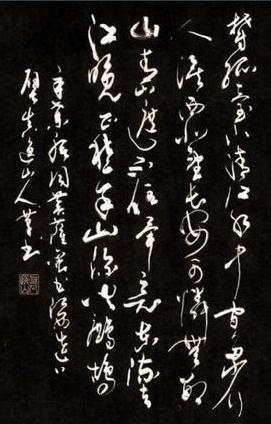 鬱孤臺下清江水中間多少行
人淚西北望長安可憐無數
山青山遮不住畢竟東流去
江晚正愁余山深聞鷓鴣
辛棄疾詞菩薩蠻書江西造口
壁 逸山人 書